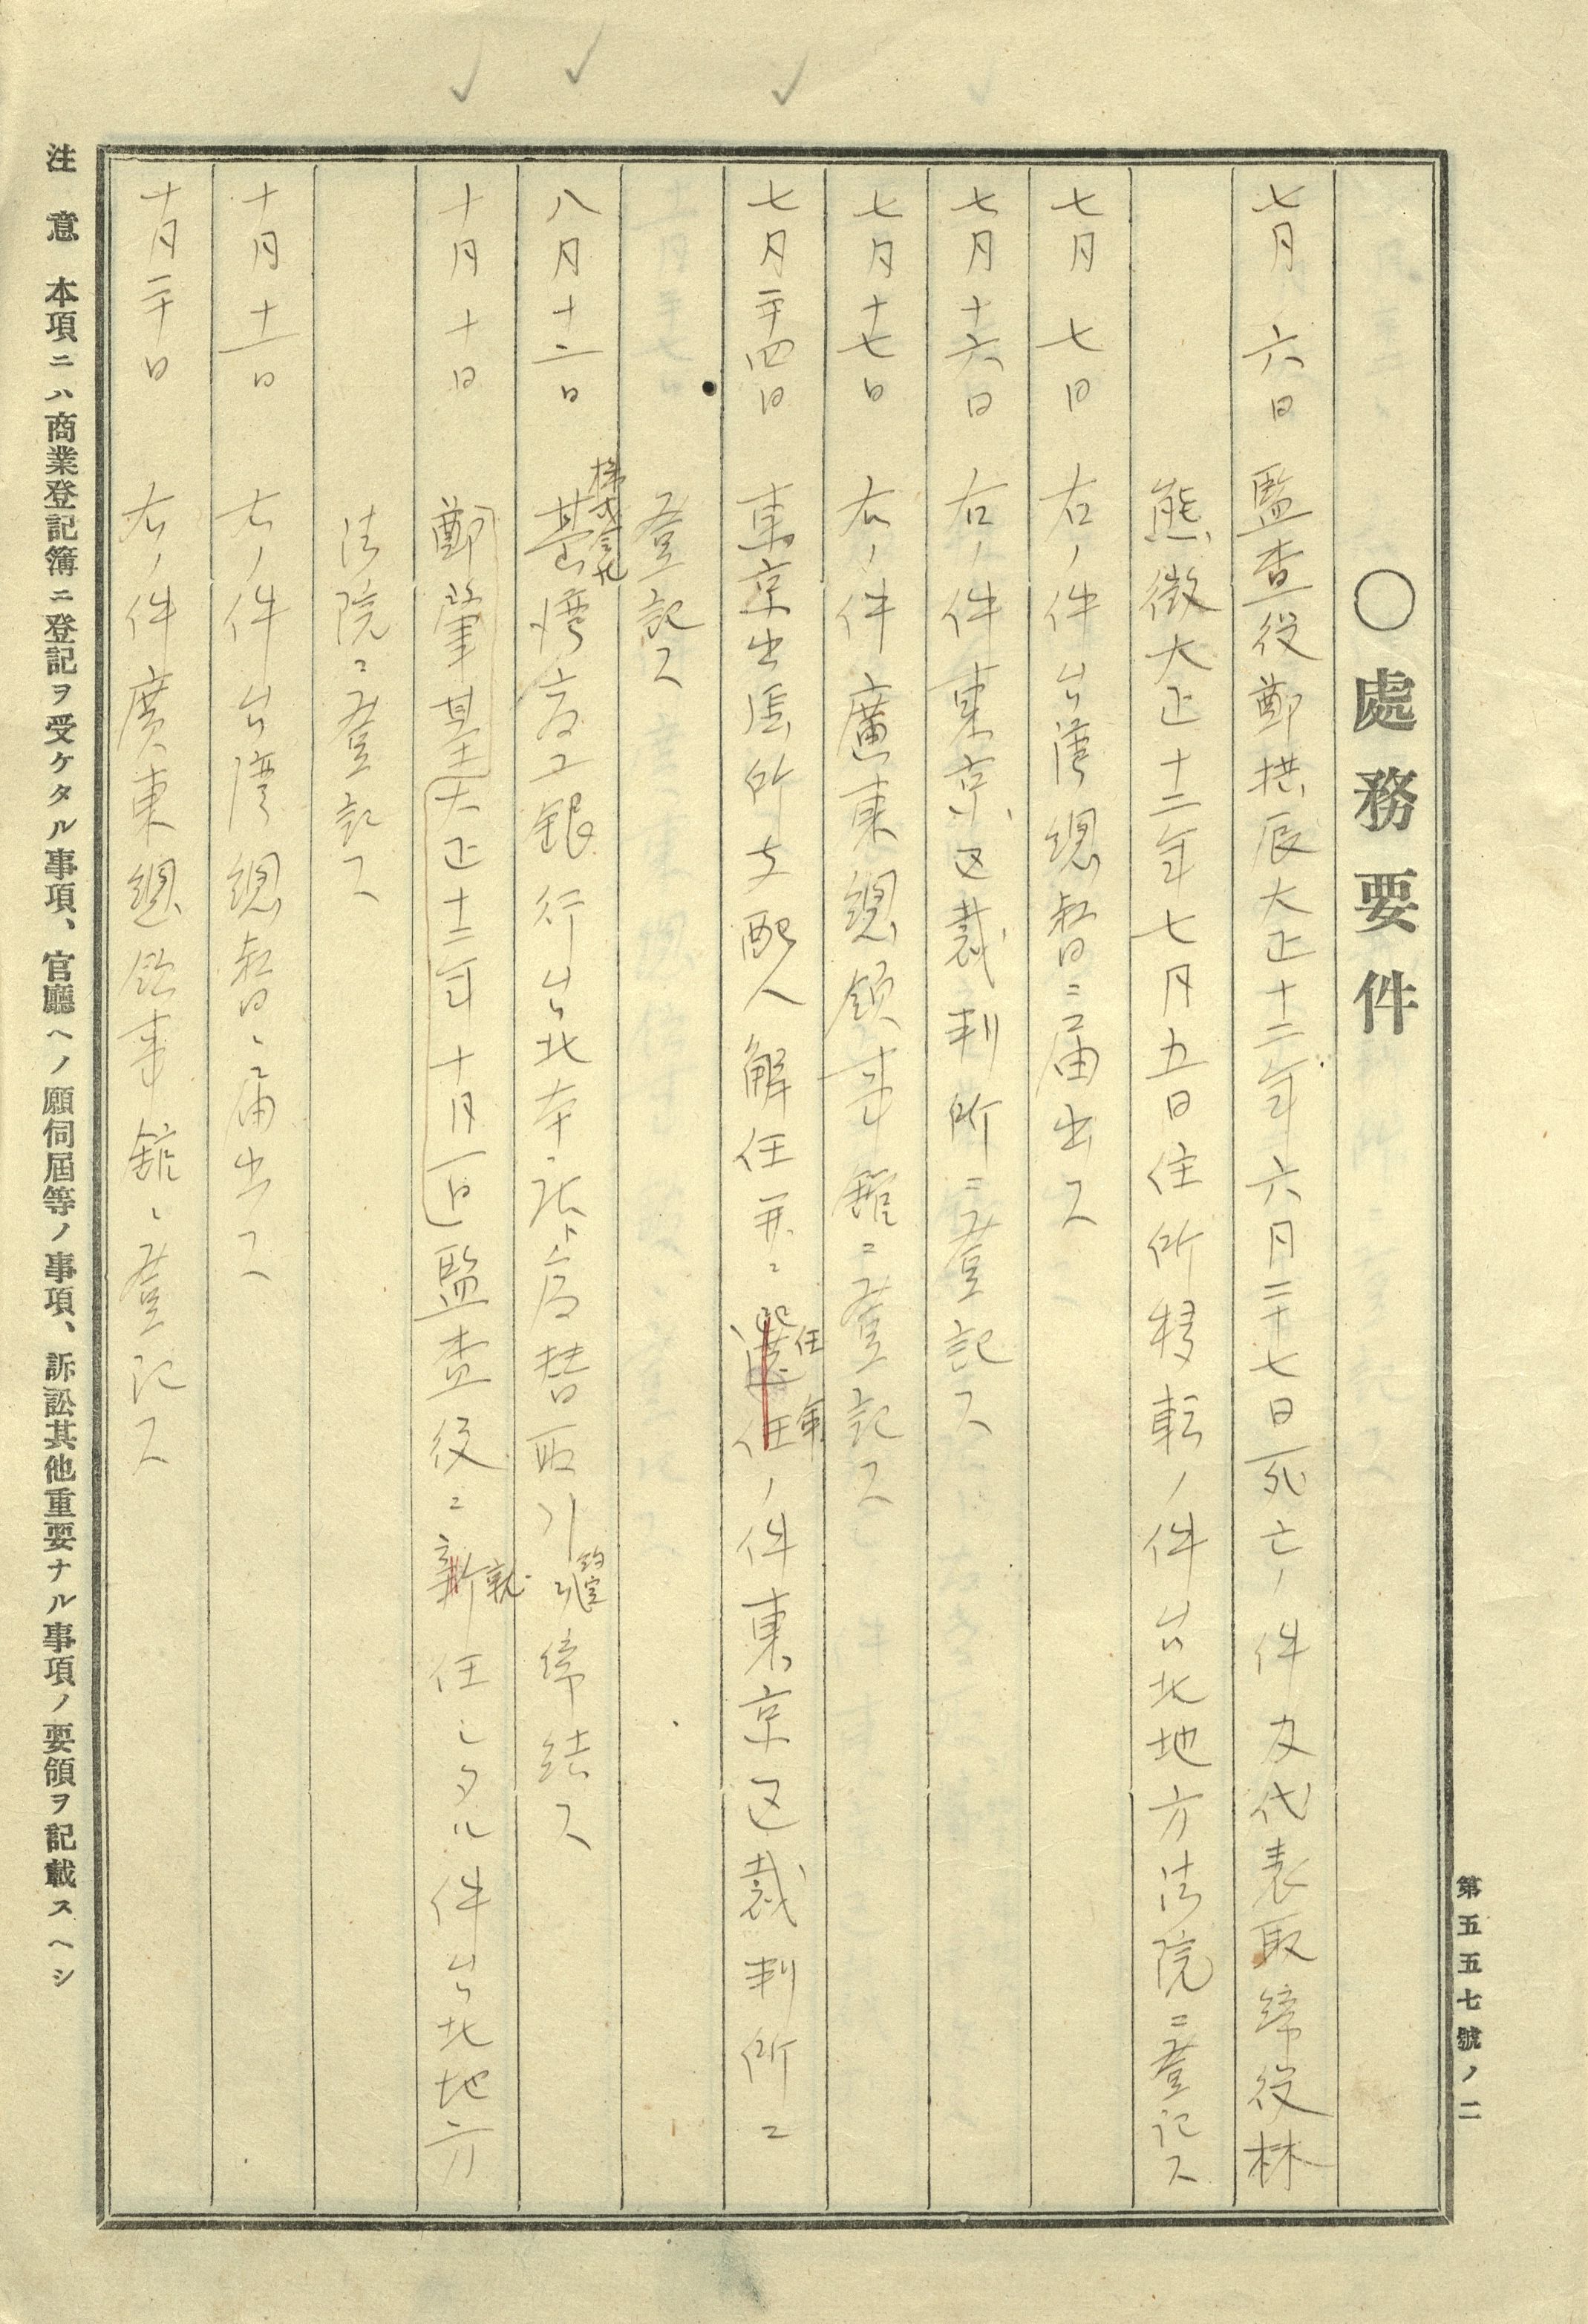 第五五七號ノ二
〇處務要件
七月六日 監査役鄭拱辰大正十二年六月二十七日死亡ノ件及代表取締役林
熊徴大正十二年七月五日住所移転ノ件台北地方法院ニ登記ス
七月七日 右ノ件台湾總督ニ届出ス
七月十六日 右ノ件東京区裁判所ニ登記ス
七月十七日 右ノ件廣東總領事館ニ登記ス
七月二十四日 東京出張所支配人解任並ニ選任ノ件東京区裁判所ニ
任
登記ス
株式会社
八月十二日 臺湾商工銀行台北本店ト為替取引締結ス
約定
十月十日 鄭肇基大正十二年十月一日監査役ニ新任シタル件台北地方
就
法院ニ登記ス
十月十一日 右ノ件台湾總督ニ届出ス
十月二十日 右ノ件廣東總領事館ニ登記ス
注意 本項ニハ商業登記簿ニ登記ヲ受ケタル事項、官廳ヘノ願伺屆等ノ事項、訴訟其他重要ナル事項ノ要領ヲ記載スヘシ